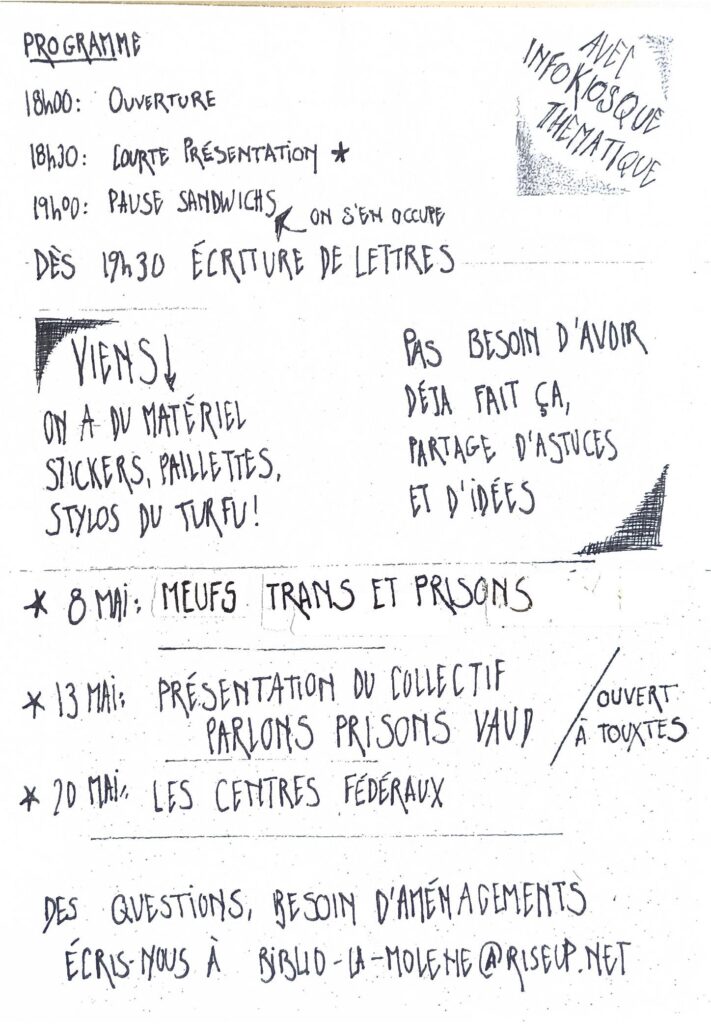 PROGRAMME
AVEC
INFOKIOSQUE
THÉMATIQUE
18h00: OUVERTURE
18h30: COURTE PRÉSENTATION ★
19h00: PAUSE SANDWICHS
ON S'EN OCCUPE
DÈS 19h30 ÉCRITURE DE LETTRES
VIENS↓
ON A DU MATÉRIEL
STICKERS, PAILLETTES,
STYLOS DU TURFU!
PAS BESOIN D'AVOIR
DÉJA FAIT ÇA,
PARTAGE D'ASTUCES
ET D'IDÉES
★ 8 MAI: MEUFS TRANS ET PRISONS
★ 13 MAI: PRÉSENTATION DU COLLECTIF
PARLONS PRISONS VAUD
/ OUVERT
À TOUXTES
★ 20 MAI: LES CENTRES FÉDÉRAUX
DES QUESTIONS, BESOIN D'AMÉNAGEMENTS
ÉCRIS-NOUS À BIBLIO-LA-MOLENE@RISEUP.NET